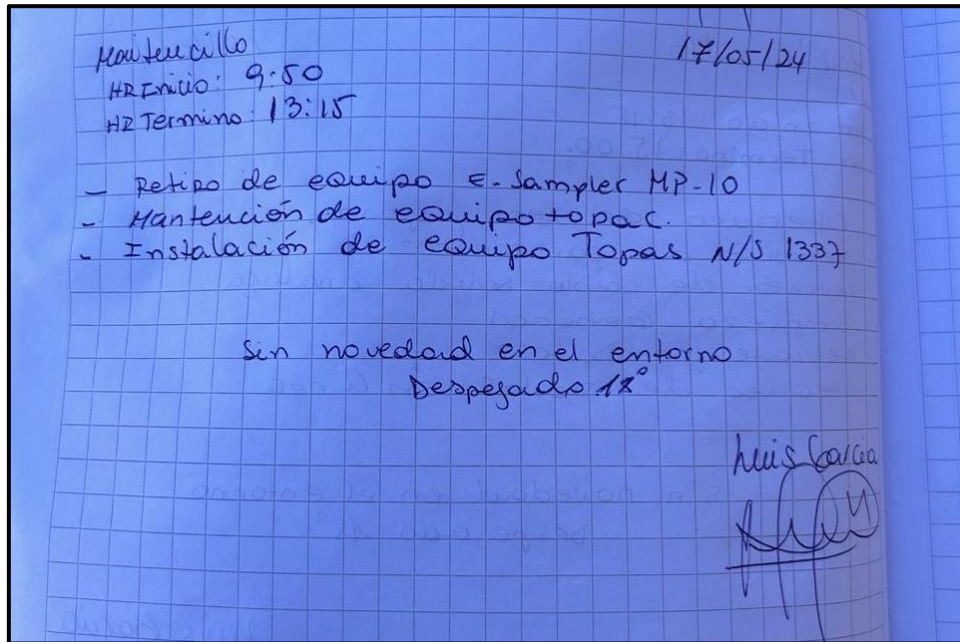 Maitencillo
17/05/24
HR Inicio: 9:50
HR Termino: 13:15
- Retiro de equipo E. Sampler MP-10
- Mantención de equipo topac.
- Instalación de equipo Topas N/S 1337
Sin novedad en el entorno
Despejado 18°
Luis Garcia